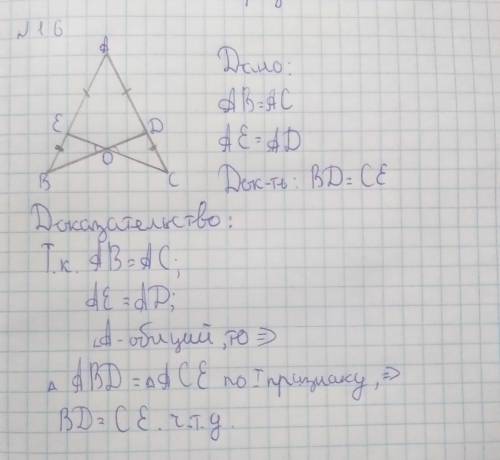 №16
A
E
D
O
B
C
Дано:
AB=AC
AE=AD
Док-ть: BD=CE
Доказательство:
Т.к. AB=AC;
AE=AD;
∠A-общий, то ⇒
△ABD=△ACE по I признаку, ⇒
BD=CE. ч.т.д.